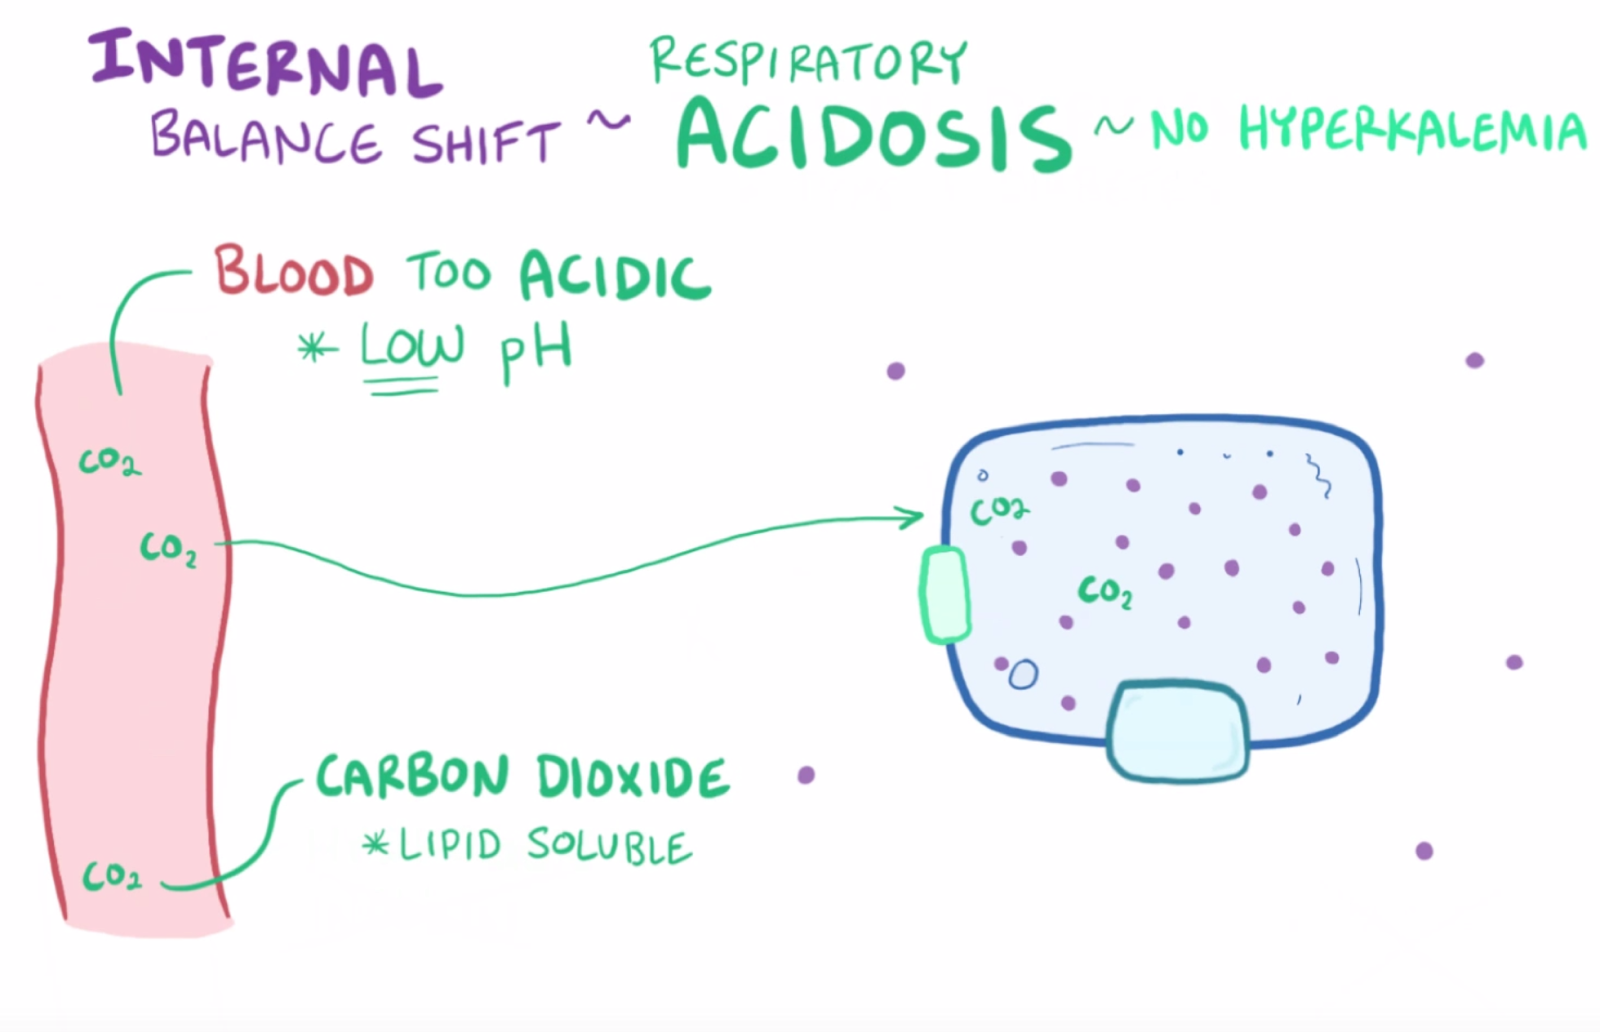 INTERNAL
BALANCE SHIFT ~
RESPIRATORY
ACIDOSIS ~ NO HYPERKALEMIA
BLOOD TOO ACIDIC
* LOW pH
CO₂
CO₂
CO₂
CO₂
CARBON DIOXIDE
* LIPID SOLUBLE
CO₂